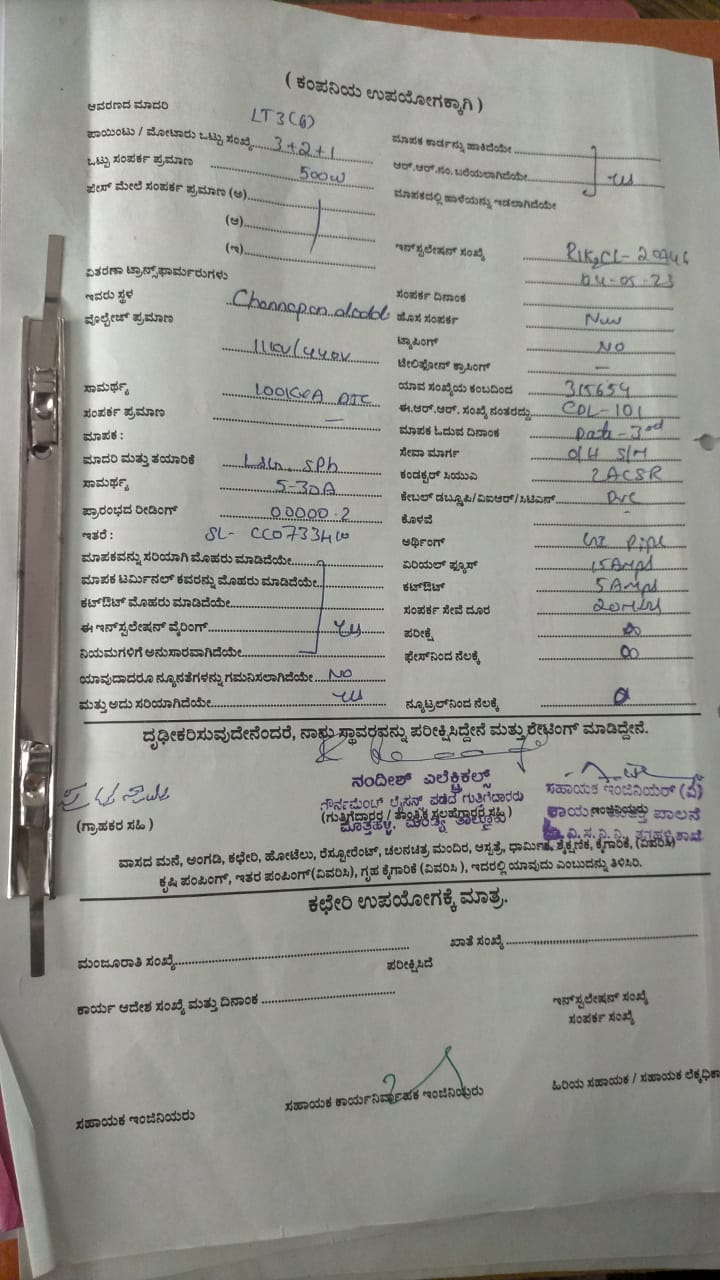 ( ಕಂಪನಿಯ ಉಪಯೋಗಕ್ಕಾಗಿ )
ಆವರಣದ ಮಾದರಿ LT3(6)
ಪಾಯಿಂಟು / ಮೋಟಾರು ಒಟ್ಟು ಸಂಖ್ಯೆ 3+2+1
ಒಟ್ಟು ಸಂಪರ್ಕ ಪ್ರಮಾಣ 500W
ಫೇಸ್ ಮೇಲೆ ಸಂಪರ್ಕ ಪ್ರಮಾಣ (ಅ)
(ಆ)
(ಇ)
ವಿತರಣಾ ಟ್ರಾನ್ಸ್‌ಫಾರ್ಮರುಗಳು
ಇವರು ಸ್ಥಳ
ವೋಲ್ಟೇಜ್ ಪ್ರಮಾಣ
11KV/440V
ಸಾಮರ್ಥ್ಯ 100KVA DTC
ಸಂಪರ್ಕ ಪ್ರಮಾಣ —
ಮಾಪಕ :
ಮಾದರಿ ಮತ್ತು ತಯಾರಿಕೆ
ಸಾಮರ್ಥ್ಯ 5-30A
ಪ್ರಾರಂಭದ ರೀಡಿಂಗ್ 00000.2
ಇತರೆ : SL-
ಮಾಪಕವನ್ನು ಸರಿಯಾಗಿ ಮೊಹರು ಮಾಡಿದೆಯೇ
ಮಾಪಕ ಟರ್ಮಿನಲ್ ಕವರನ್ನು ಮೊಹರು ಮಾಡಿದೆಯೇ
ಕಟ್‌ಔಟ್ ಮೊಹರು ಮಾಡಿದೆಯೇ
ಈ ಇನ್‌ಸ್ಟಲೇಷನ್ ವೈರಿಂಗ್ yes
ನಿಯಮಗಳಿಗೆ ಅನುಸಾರವಾಗಿದೆಯೇ
ಯಾವುದಾದರೂ ನ್ಯೂನತೆಗಳನ್ನು ಗಮನಿಸಲಾಗಿದೆಯೇ NO
ಮತ್ತು ಅದು ಸರಿಯಾಗಿದೆಯೇ yes
ಮಾಪಕ ಕಾರ್ಡನ್ನು ಹಾಕಿದೆಯೇ
ಆರ್.ಆರ್.ನಂ. ಬರೆಯಲಾಗಿದೆಯೇ yes
ಮಾಪಕದಲ್ಲಿ ಹಾಳೆಯನ್ನು ಇಡಲಾಗಿದೆಯೇ
ಇನ್‌ಸ್ಟಲೇಷನ್ ಸಂಖ್ಯೆ
04-05-23
ಸಂಪರ್ಕ ದಿನಾಂಕ
ಹೊಸ ಸಂಪರ್ಕ New
ಟ್ಯಾಪಿಂಗ್ NO
ಟೆಲಿಫೋನ್ ಕ್ರಾಸಿಂಗ್ —
ಯಾವ ಸಂಖ್ಯೆಯ ಕಂಬದಿಂದ 315654
ಈ.ಆರ್.ಆರ್. ಸಂಖ್ಯೆ ನಂತರದ್ದು CDL-101
ಮಾಪಕ ಓದುವ ದಿನಾಂಕ Date-3rd
ಸೇವಾ ಮಾರ್ಗ O/H S/M
ಕಂಡಕ್ಟರ್ ಸಿಯುಎ 2ACSR
ಕೇಬಲ್ ಡಬ್ಲೂಪಿ/ವಿಐಆರ್/ಸಿಟಿಎಸ್ PVC
ಕೊಳವೆ -
ಅರ್ಥಿಂಗ್ GI Pipe
ಏರಿಯಲ್ ಫ್ಯೂಸ್ 15Amps
ಕಟ್‌ಔಟ್ 5Amps
ಸಂಪರ್ಕ ಸೇವೆ ದೂರ 20Mtrs
ಪರೀಕ್ಷೆ ∞
ಫೇಸ್‌ನಿಂದ ನೆಲಕ್ಕೆ ∞
ನ್ಯೂಟ್ರಲ್‌ನಿಂದ ನೆಲಕ್ಕೆ
ದೃಢೀಕರಿಸುವುದೇನೆಂದರೆ, ನಾನು ಸ್ಥಾವರವನ್ನು ಪರೀಕ್ಷಿಸಿದ್ದೇನೆ ಮತ್ತು ರೇಟಿಂಗ್ ಮಾಡಿದ್ದೇನೆ.
ನಂದೀಶ್ ಎಲೆಕ್ಟ್ರಿಕಲ್ಸ್
ಗೌರ್ನಮೆಂಟ್ ಲೈಸನ್ಸ್ ಪಡೆದ ಗುತ್ತಿಗೆದಾರರು
ಸಹಾಯಕ ಇಂಜಿನಿಯರ್ (ವಿ)
(ಗ್ರಾಹಕರ ಸಹಿ )
(ಗುತ್ತಿಗೆದಾರರ / ತಾಂತ್ರಿಕ ಸಲಹೆಗಾರರ ಸಹಿ )
ಇಂಜಿನಿಯರು
ವಾಸದ ಮನೆ, ಅಂಗಡಿ, ಕಛೇರಿ, ಹೋಟೆಲು, ರೆಸ್ಟೋರೆಂಟ್, ಚಲನಚಿತ್ರ ಮಂದಿರ, ಆಸ್ಪತ್ರೆ, ಧಾರ್ಮಿಕ, ಶೈಕ್ಷಣಿಕ, ಕೈಗಾರಿಕೆ, (ವಿವರಿಸಿ)
ಕೃಷಿ ಪಂಪಿಂಗ್, ಇತರ ಪಂಪಿಂಗ್(ವಿವರಿಸಿ), ಗೃಹ ಕೈಗಾರಿಕೆ (ವಿವರಿಸಿ ), ಇದರಲ್ಲಿ ಯಾವುದು ಎಂಬುದನ್ನು ತಿಳಿಸಿರಿ.
ಕಛೇರಿ ಉಪಯೋಗಕ್ಕೆ ಮಾತ್ರ.
ಮಂಜೂರಾತಿ ಸಂಖ್ಯೆ
ಖಾತೆ ಸಂಖ್ಯೆ
ಪರೀಕ್ಷಿಸಿದೆ
ಕಾರ್ಯ ಆದೇಶ ಸಂಖ್ಯೆ ಮತ್ತು ದಿನಾಂಕ
ಇನ್‌ಸ್ಟಲೇಷನ್ ಸಂಖ್ಯೆ
ಸಂಪರ್ಕ ಸಂಖ್ಯೆ
ಸಹಾಯಕ ಇಂಜಿನಿಯರು
ಸಹಾಯಕ ಕಾರ್ಯನಿರ್ವಾಹಕ ಇಂಜಿನಿಯರು
ಹಿರಿಯ ಸಹಾಯಕ / ಸಹಾಯಕ